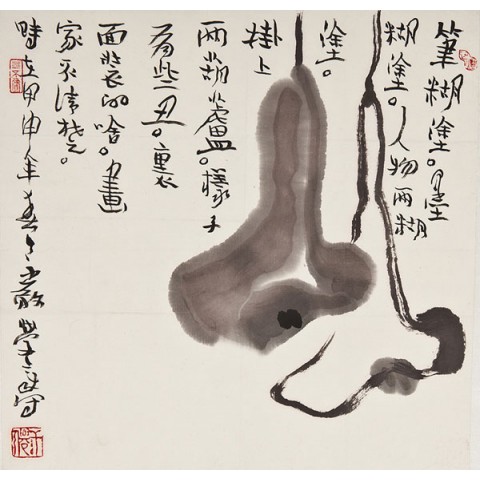 筆糊塗。墨
糊塗。人物兩糊
塗。
掛上
兩葫蘆。樣子
有些丑。裏
面裝的啥。畫
家不清楚。
時在甲申年春